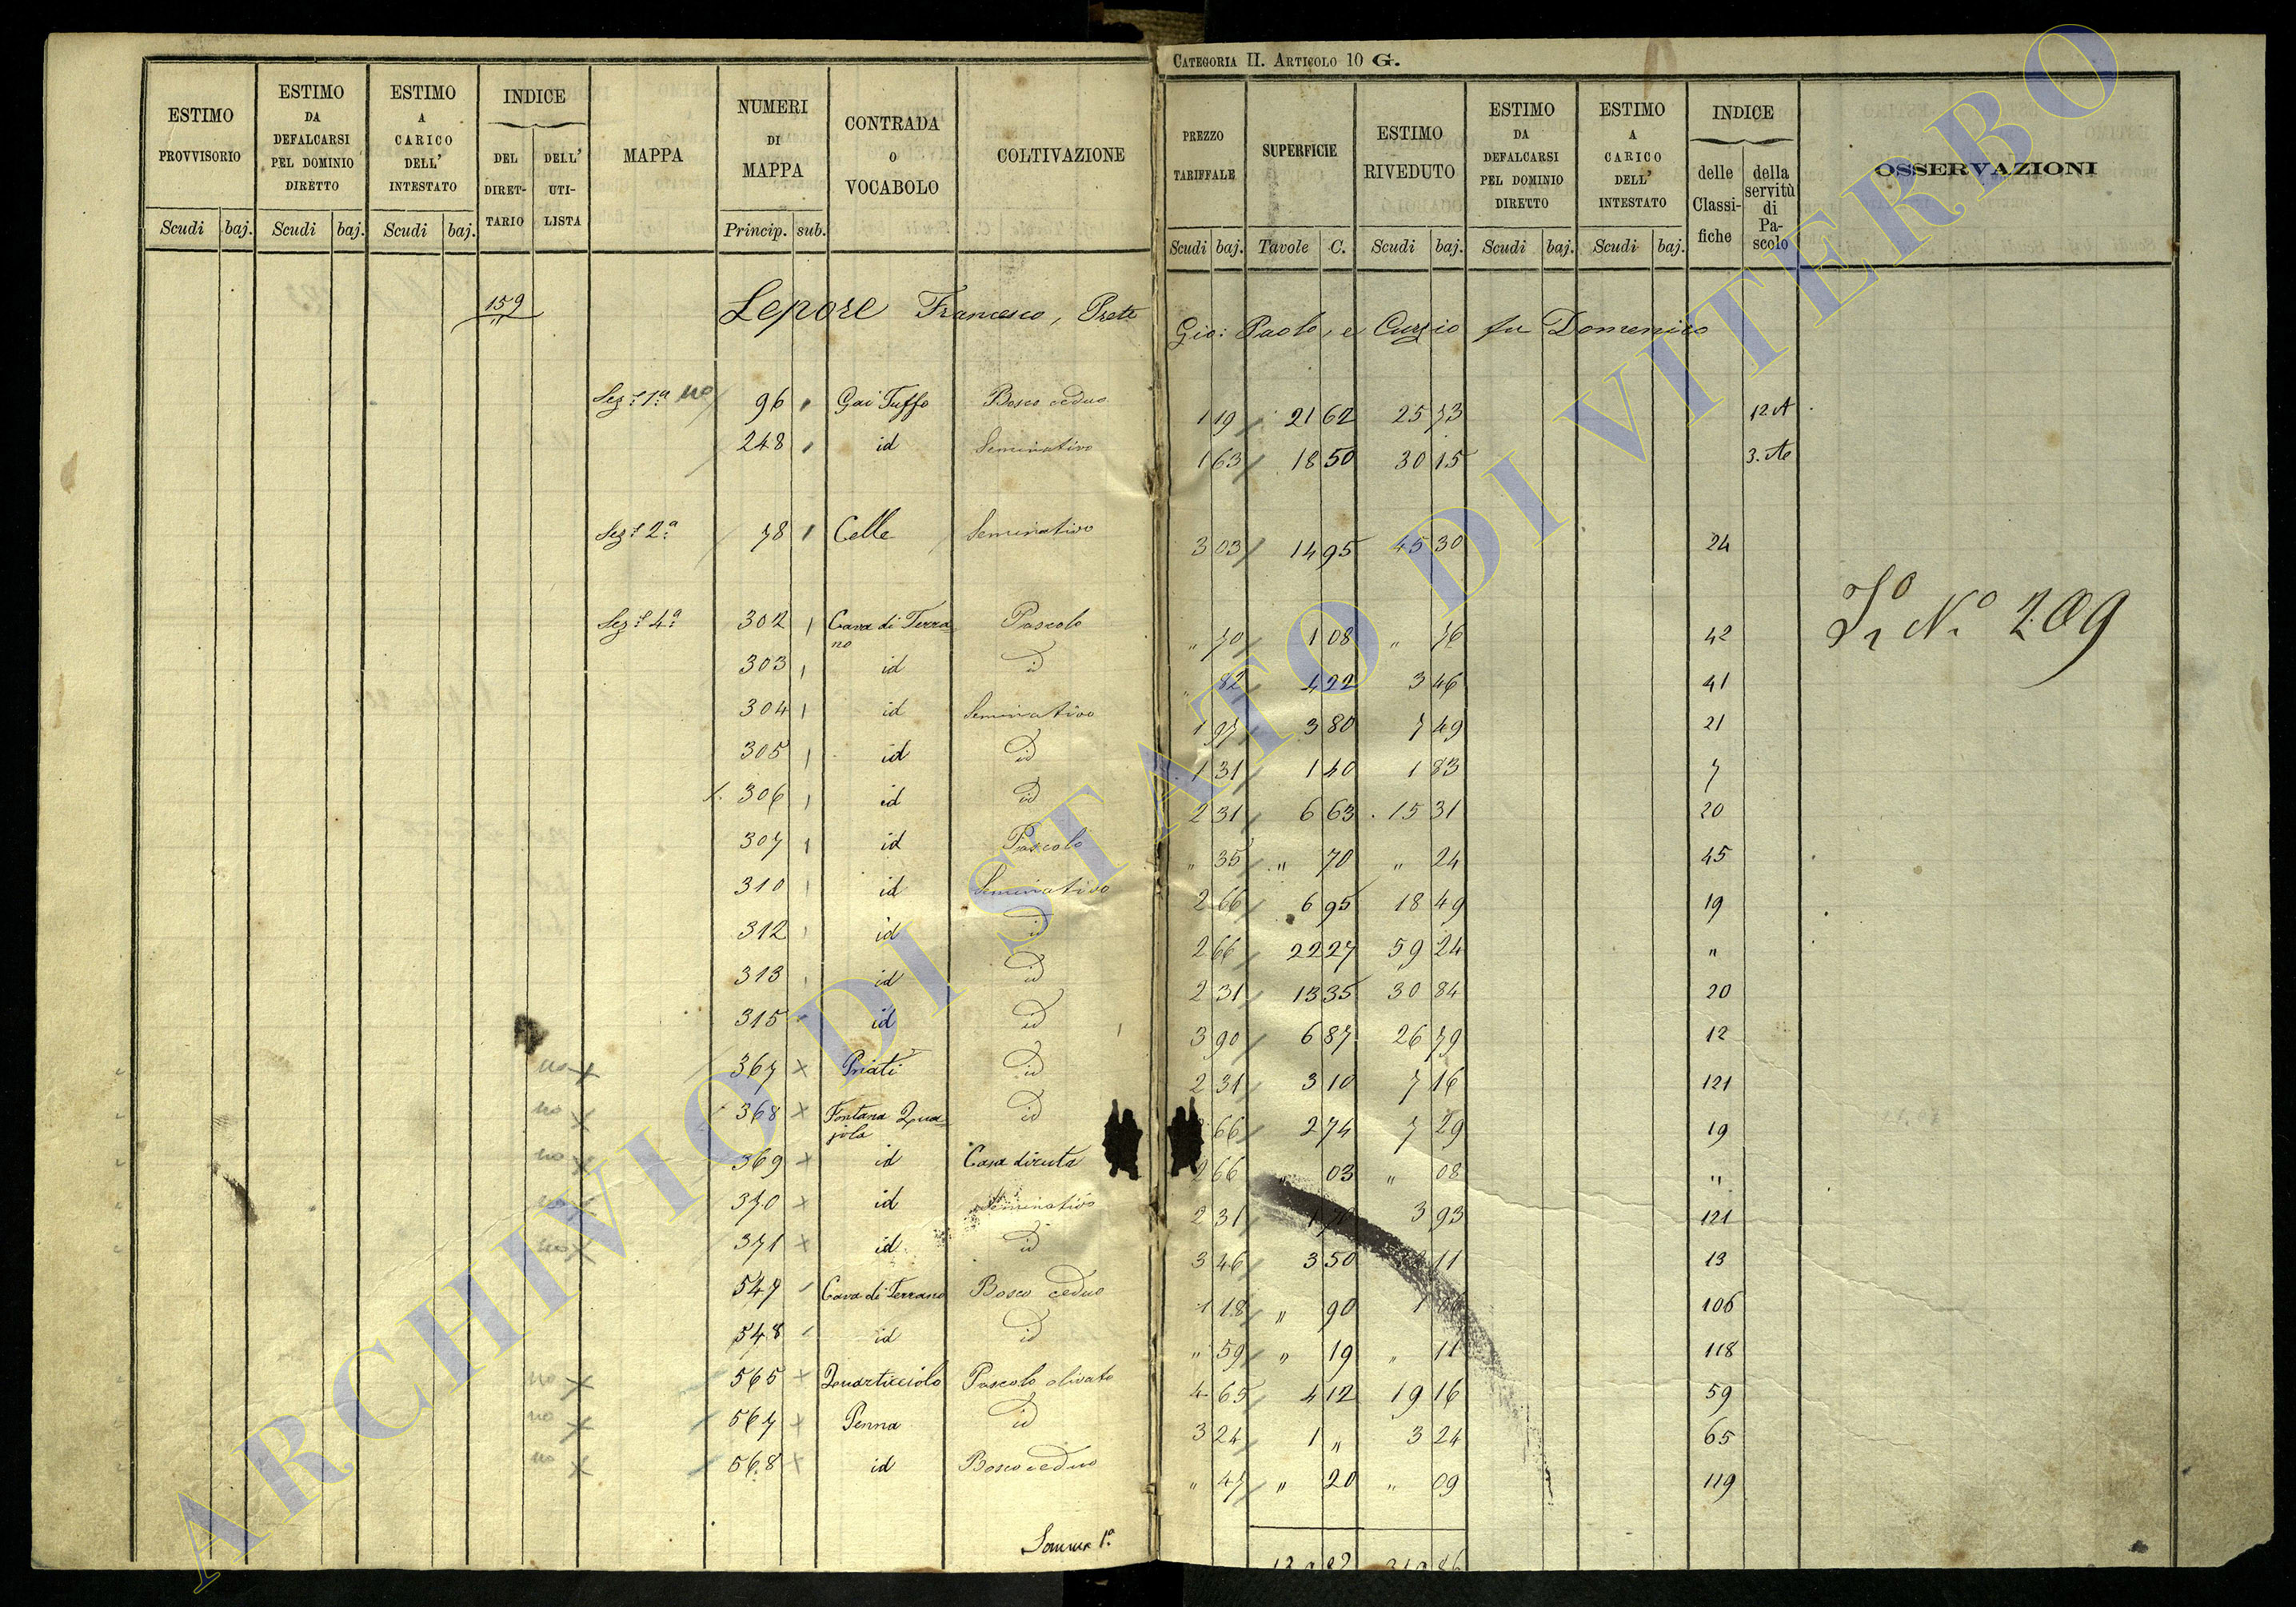 CATEGORIA II. ARTICOLO 10 G.
ESTIMO PROVVISORIO Scudi baj. ESTIMO DA DEFALCARSI PEL DOMINIO DIRETTO Scudi baj. ESTIMO A CARICO DELL' INTESTATO Scudi baj. INDICE DEL DIRETTARIO DELL' UTILISTA MAPPA NUMERI DI MAPPA Princip. sub. CONTRADA O VOCABOLO COLTIVAZIONE
PREZZO TARIFFALE Scudi baj. SUPERFICIE Tavole C. ESTIMO RIVEDUTO Scudi baj. ESTIMO DA DEFALCARSI PEL DOMINIO DIRETTO Scudi baj. ESTIMO A CARICO DELL' INTESTATO Scudi baj. INDICE delle Classifiche della servitù di Pascolo OSSERVAZIONI
159 Lepore Francesco, Prete Gio: Paolo, e Curzio fu Domenico
Sez. 1ª no 96 Gai Tuffo Bosco ceduo 1 19 21 62 25 73 12 A
248 id Seminativo 1 63 18 50 30 15 3. Ae
Sez. 2ª 78 Celle Seminativo 3 03 14 95 45 30 24
Sez. 4ª 302 Cava di Terrano Pascolo " 70 1 08 " 76 42
Nº 209
303 id id " 82 4 22 3 46 41
304 id Seminativo 1 97 3 80 7 49 21
305 id id 1 31 1 40 1 83 7
306 id id 2 31 6 63 15 31 20
307 id Pascolo " 35 " 70 " 24 45
310 id Seminativo 2 66 6 95 18 49 19
312 id id 2 66 22 27 59 24 "
313 id id 2 31 13 35 30 84 20
315 id id 3 90 6 87 26 79 12
no x 367 x Priati id 2 31 3 10 7 16 121
no x 368 x Fontana Quajola id 66 2 74 7 29 19
no x 369 x id Casa diruta 2 66 " 03 " 08 "
no x 370 x id Seminativo 2 31 1 3 93 121
no x 371 x id id 3 46 3 50 11 13
547 Cava di Terrano Bosco ceduo 1 18 " 90 1 106
548 id id " 59 " 19 " 11 118
no x 565 x Quarticciolo Pascolo olivato 4 65 4 12 19 16 59
no x 567 x Penna id 3 24 1 " 3 24 65
no x 568 x id Bosco ceduo " 47 " 20 " 09 119
Somma 1ª
ARCHIVIO DI STATO DI VITERBO